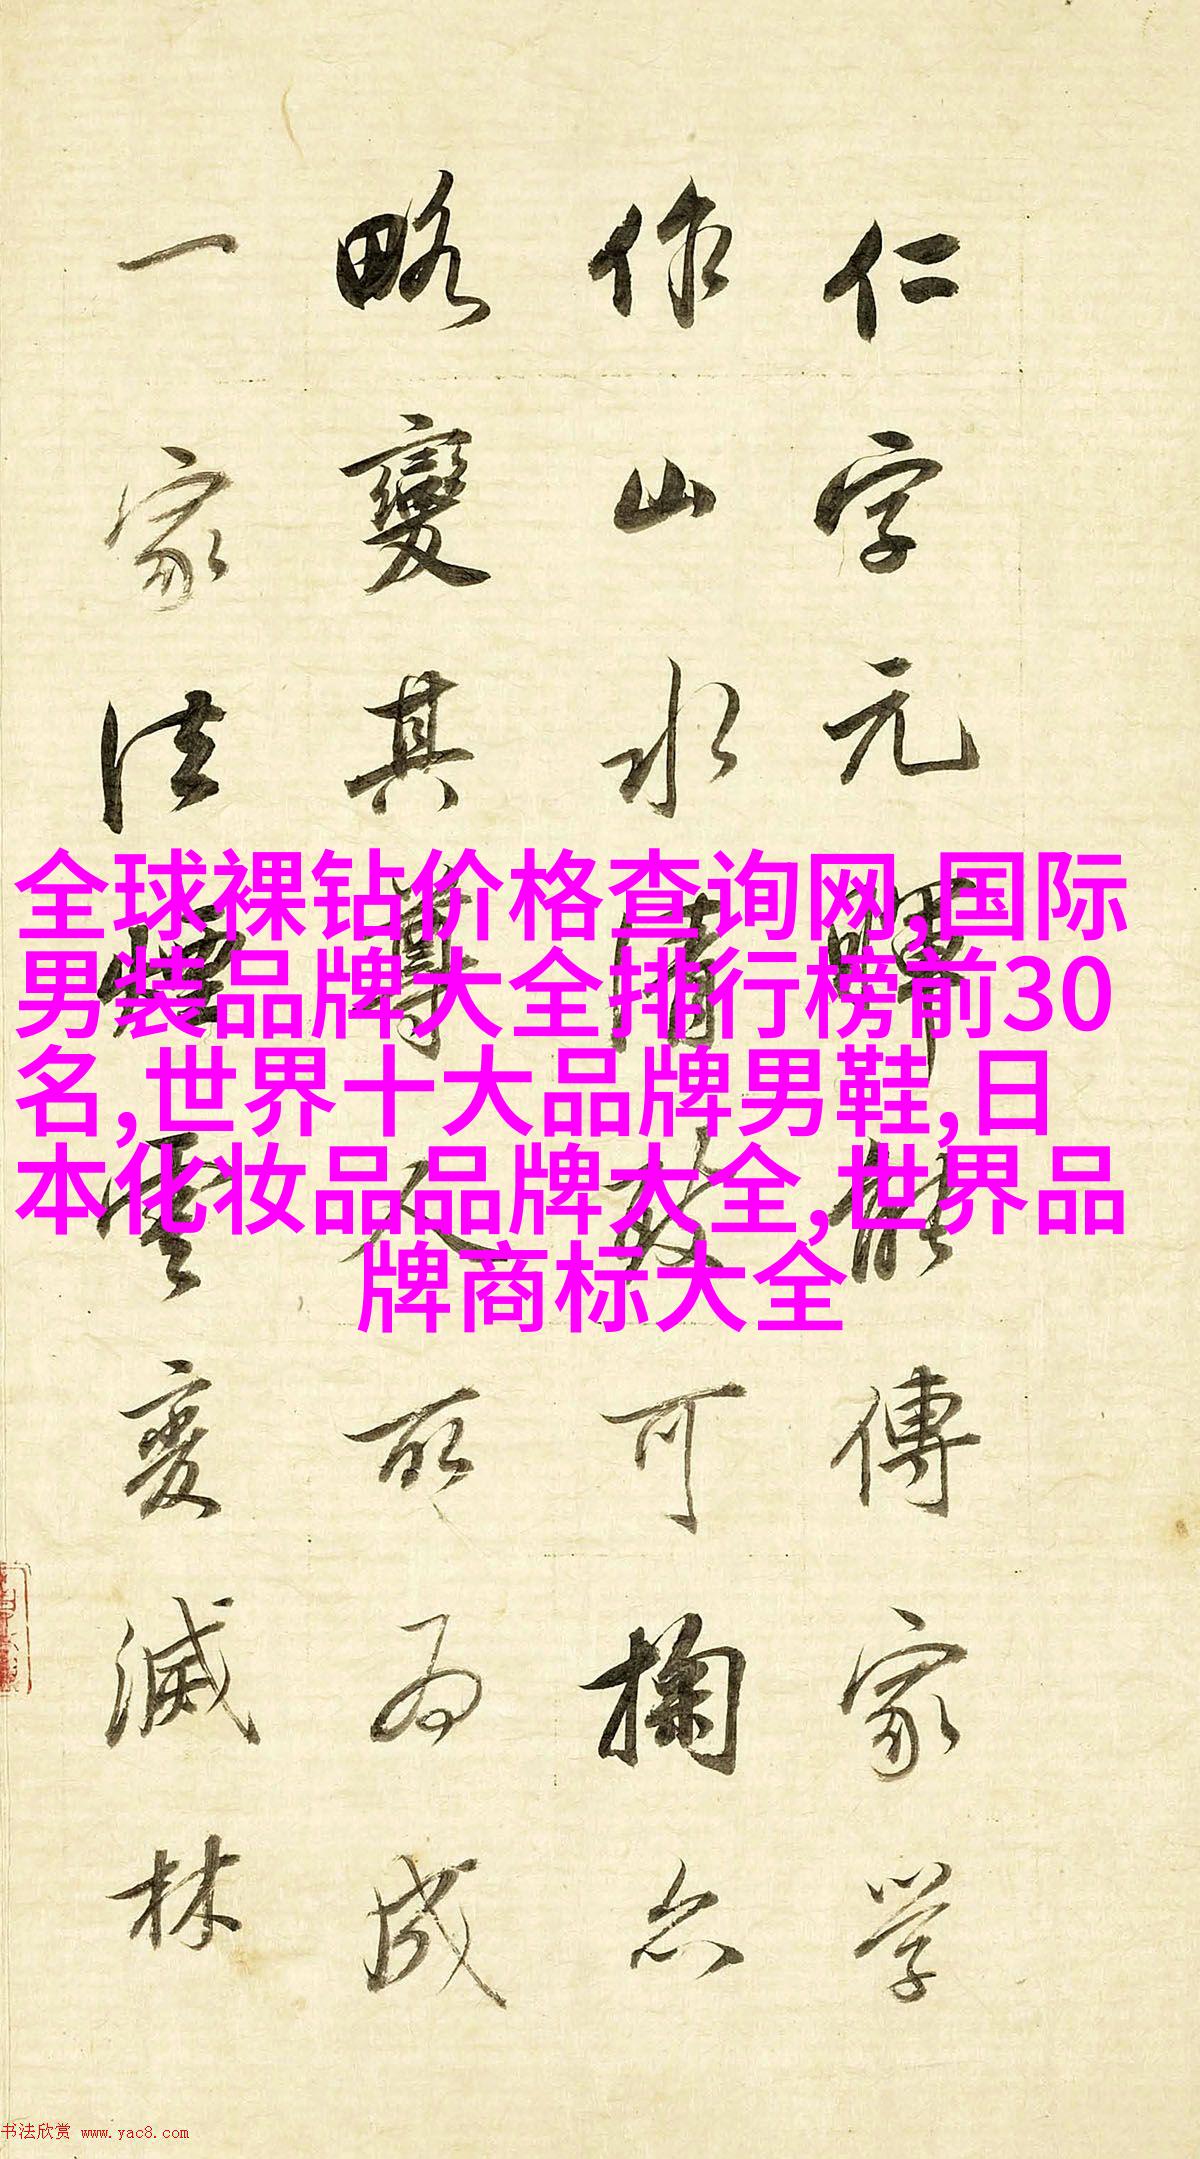 仁字元暉能傳家學
作山水清致可掬亦
略變其尊人所為成
一家法煙雲變滅林
全球裸钻价格查询网,国际
男装品牌大全排行榜前30
名,世界十大品牌男鞋,日
本化妆品品牌大全,世界品
牌商标大全
书法欣赏 www.yac8.com